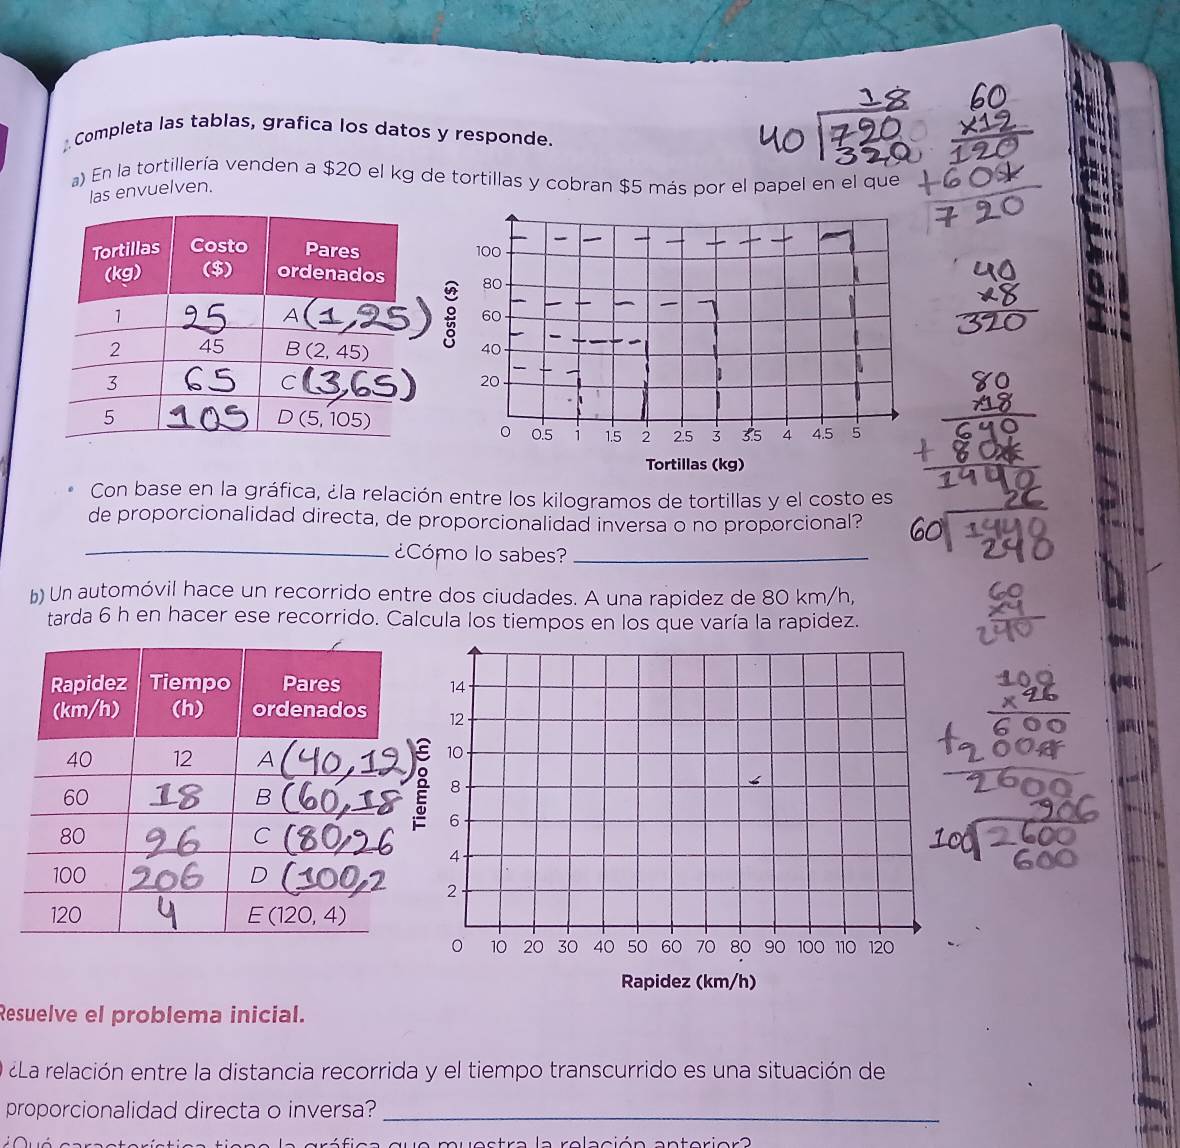 Completa las tablas, grafica los datos y responde.
a) En la tortillería venden a $20 el kg de tortillas y cobran $5 más por el papel en el que
las envuelven.
Tortillas (kg) Costo ($) Pares ordenados
1 25 A (1,25)
2 45 B (2, 45)
3 65 C (3,65)
5 105 D (5, 105)
Costo ($)
100
80
60
40
20
0 0.5 1 1.5 2 2.5 3 3.5 4 4.5 5
Tortillas (kg)
• Con base en la gráfica, ¿la relación entre los kilogramos de tortillas y el costo es
de proporcionalidad directa, de proporcionalidad inversa o no proporcional?
¿Cómo lo sabes?
b) Un automóvil hace un recorrido entre dos ciudades. A una rapidez de 80 km/h,
tarda 6 h en hacer ese recorrido. Calcula los tiempos en los que varía la rapidez.
Rapidez (km/h) Tiempo (h) Pares ordenados
40 12 A (40,12)
60 18 B (60,18
80 26 C (80,26
100 206 D (100,2
120 4 E (120, 4)
Tiempo (h)
14
12
10
8
6
4
2
0 10 20 30 40 50 60 70 80 90 100 110 120
Rapidez (km/h)
Resuelve el problema inicial.
¿La relación entre la distancia recorrida y el tiempo transcurrido es una situación de
proporcionalidad directa o inversa?
¿Qué característica tiene la gráfica que muestra la relación anterior?
18
40 720
320
60
x12
120
+60
720
40
x8
320
80
x18
640
+ 80
1440
26
60 1440
248
60
x4
240
100
x26
600
+200
2600
206
100 2600
600